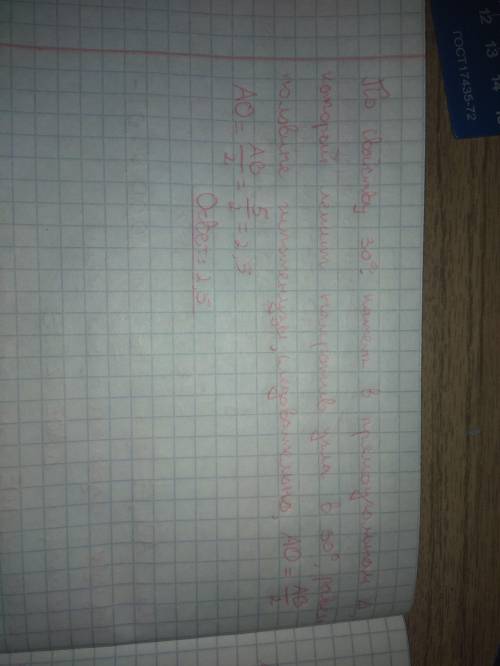 По свойству 30°, катет в прямоугольном Δ
который лежит напротив угла в 30°, равен
половине гипотенузы, следовательно, AO = AB/2
AO = AB/2 = 5/2 = 2,5
Ответ: 2,5
12 13 14 15
ГОСТ 17435-72